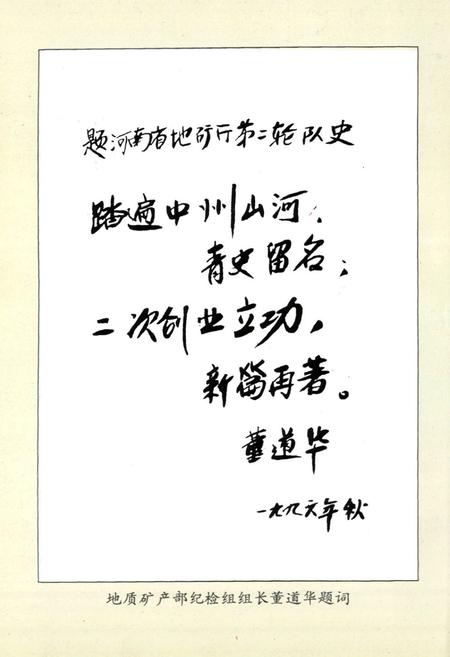 题河南省地矿厅第二轮队史
踏遍中州山河,
青史留名;
二次创业立功,
新篇再著。
董道华
一九九六年秋
地质矿产部纪检组组长董道华题词